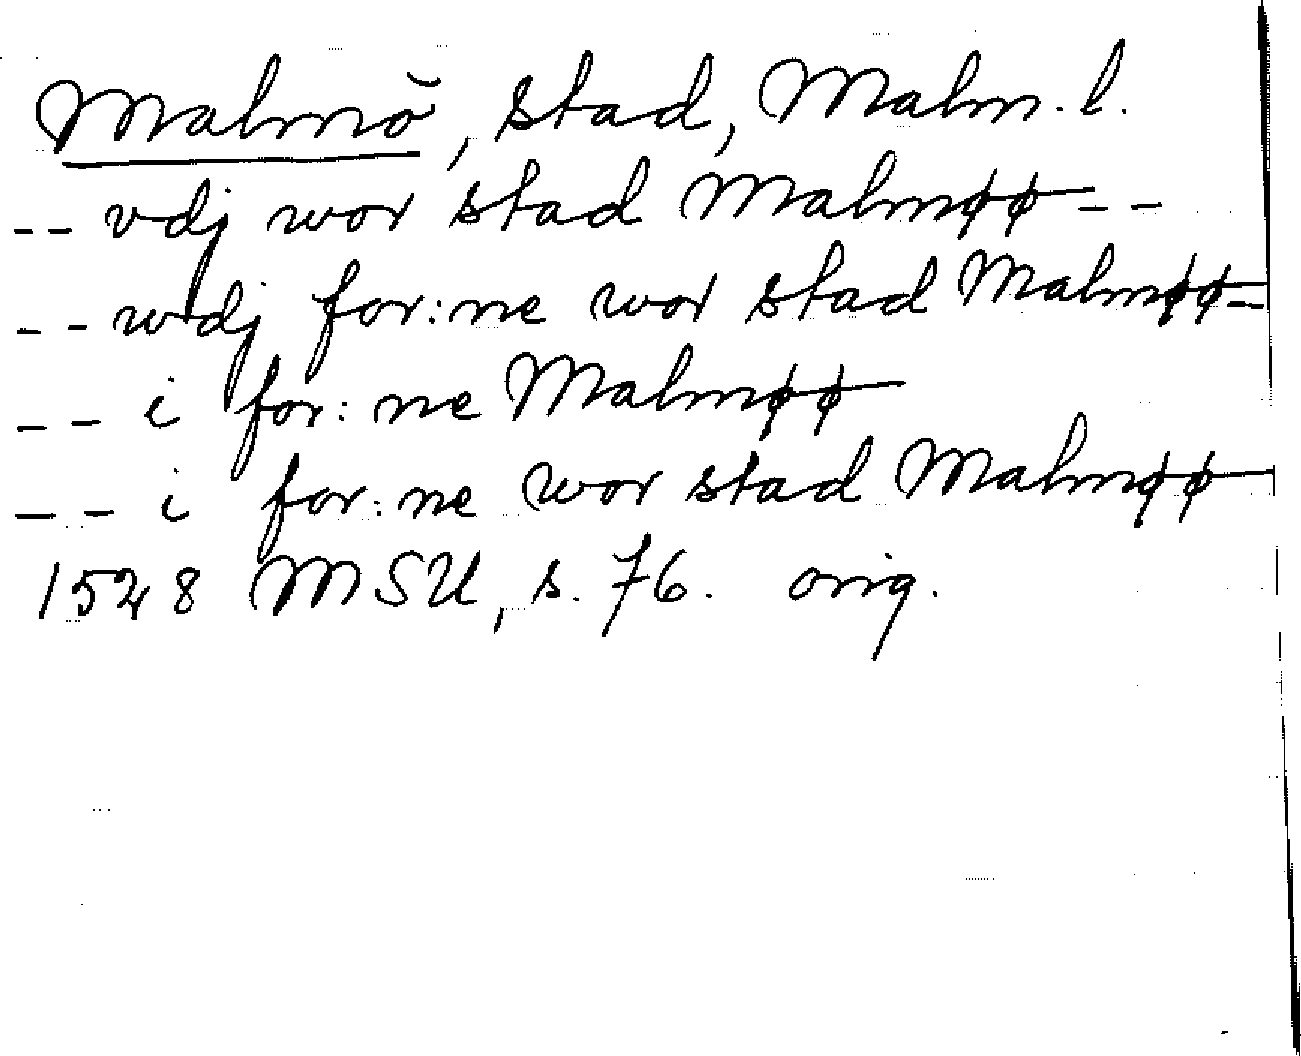 Malmö, stad, Malm. l.
-- vdj wor stad Malmøø --
-- wdj for:ne wor stad Malmøø --
-- i for:ne Malmøø
-- i for:ne wor stad Malmøø
1528 MSU, s. 76. orig.